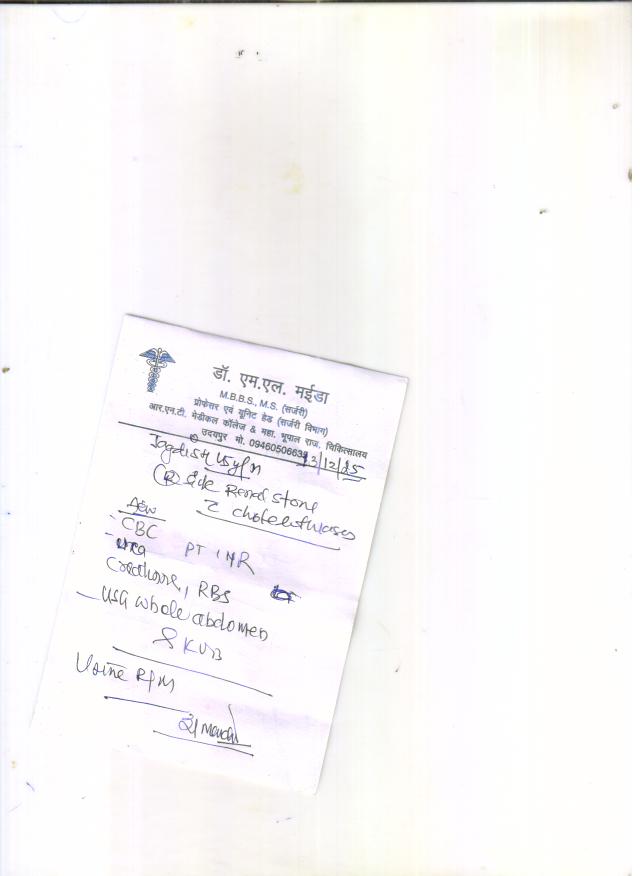 डॉ. एम.एल. मईडा
M.B.B.S., M.S. (सर्जरी)
प्रोफेसर एवं यूनिट हेड (सर्जरी विभाग)
आर.एन.टी. मेडीकल कॉलेज & महा. भूपाल राज. चिकित्सालय
उदयपुर मो. 09460506639
13/12/25
Jagdish 45y/m
(R) side Renal stone
c cholelithiases
Adv
CBC
urea PT INR
Creatinine, RBS
USG whole abdomen
& KUB
Urine R/M